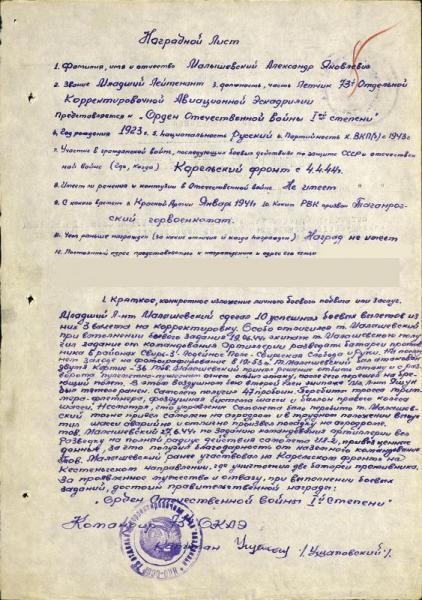 Наградной Лист
1. Фамилия, имя и отчество Малышевский Александр Яковлевич
2. Звание Младший Лейтенант 3. должность, часть Летчик 73й Отдельной
Корректировочной Авиационной Эскадрилии
Представляется к "Орден Отечественной Войны Iой степени"
4. Год рождения 1923 г. 5. Национальность Русский 6. Партийность к. ВКП(б) с 1943г
7. Участие в гражданской войне, последующих боевых действиях по защите СССР и отечествен-
ной войне (где, когда) Карельский фронт с 4.4.44г.
8. Имеет ли ранения и контузии в Отечественной войне Не имеет
9. С какого времени в Красной Армии Января 1941г 10. Каким РВК призван Таганрог-
ский горвоенкомат.
11. Чем ранее награжден (за какие отличия и когда награжден) Наград не имеет
12. Постоянный адрес представляемого к награждению и адрес его семьи
1. Краткое, конкретное изложение личного боевого подвига или заслуг.
Младший Л-нт Малашевский сделал 10 успешных боевых вылетов из
них 3 вылета на корректировку. Особо отличился т. Малашевский
при выполнении боевого задания 19.06.44г экипаж т. Малашевского полу-
чил задание от командования Артиллерии разведать батареи против-
ника в районах Свирь-3 Лодейное Поле - Свирьская Слобода и Рути. На
заходе на фотографирование в 10:53 т. Малашевский был атакован
двумя Кертис-36 тов. Малашевский принял решение отбить атаку и раз-
воротом пулеметно-пушечным огнем отбил атаку, после перешел на бре-
ющий полет. В этом воздушном бою второй член экипажа Шл. Л-нт Якгун
был тяжело ранен. Самолет получил 47 пробоин. Перебит тросс трим-
мера-флетнера, воздушная система шасси и баллон правого колеса
шасси. Несмотря, что управление самолета было перебито, т. Малашев-
ский точно привел самолет на аэродром и в трудном положении выпус-
тил шасси аварийно и отлично произвел посадку на аэродроме.
тов. Малашевский 27.6.44г по заданию командования артиллерии вел
Разведку на полный радиус действия самолета Ил-2, привез ценные
данные, за что получил благодарность от наземного командования
тов. Малашевский ранее участвовал на Карельском фронте на
Кестеньгском направлении, где уничтожил две батареи противника.
За проявленное мужество и отвагу, при выполнении боевых
заданий, достоин правительственной награды:
"Орден Отечественной Войны Iй Степени"
Командир 73 ОКАЭ
Капитан /Ущаповский/.